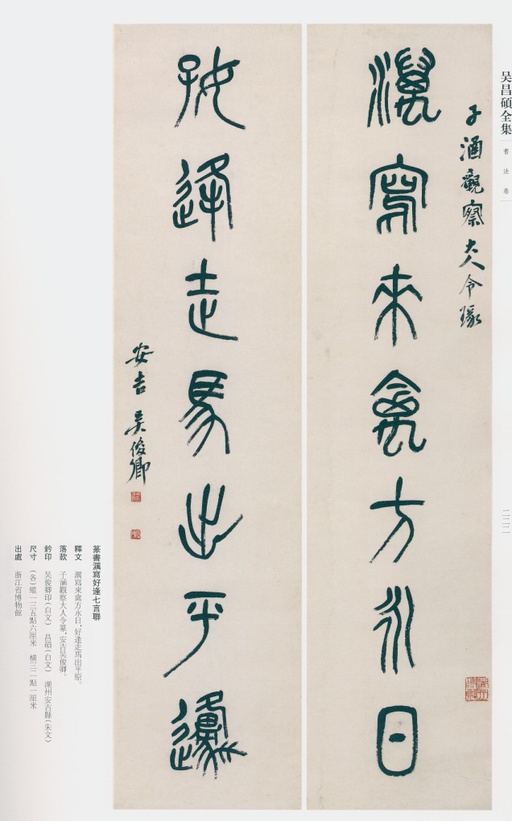 吴昌硕全集
書法卷
二二二
子涵觀察大人令篆
漁寫來禽方永日
好逢走馬出平邍
安吉吳俊卿
篆書漁寫好逢七言聯
釋文 漁寫來禽方永日，好逢走馬出平原。
落款 子涵觀察大人令篆，安吉吳俊卿。
鈐印 吳俊卿印（白文） 昌碩（白文） 湖州安吉縣（朱文）
尺寸 （各）縱一三五點六厘米 橫三一點一厘米
出處 浙江省博物館